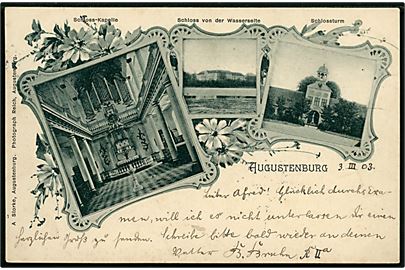 Schloss-Kapelle
Schloss von der Wasserseite
Schlossturm
A. Störke, Augustenburg. Photograph Reich, Augustenburg.
AUGUSTENBURG 3 III 03.
Lieber Alfred! Glücklich durchs Exa-
men, will ich es nicht unterlassen dir einen
herzlichen Gruß zu senden. Schreibe bitte bald wieder an deinen
Vetter B. Bruhn II a